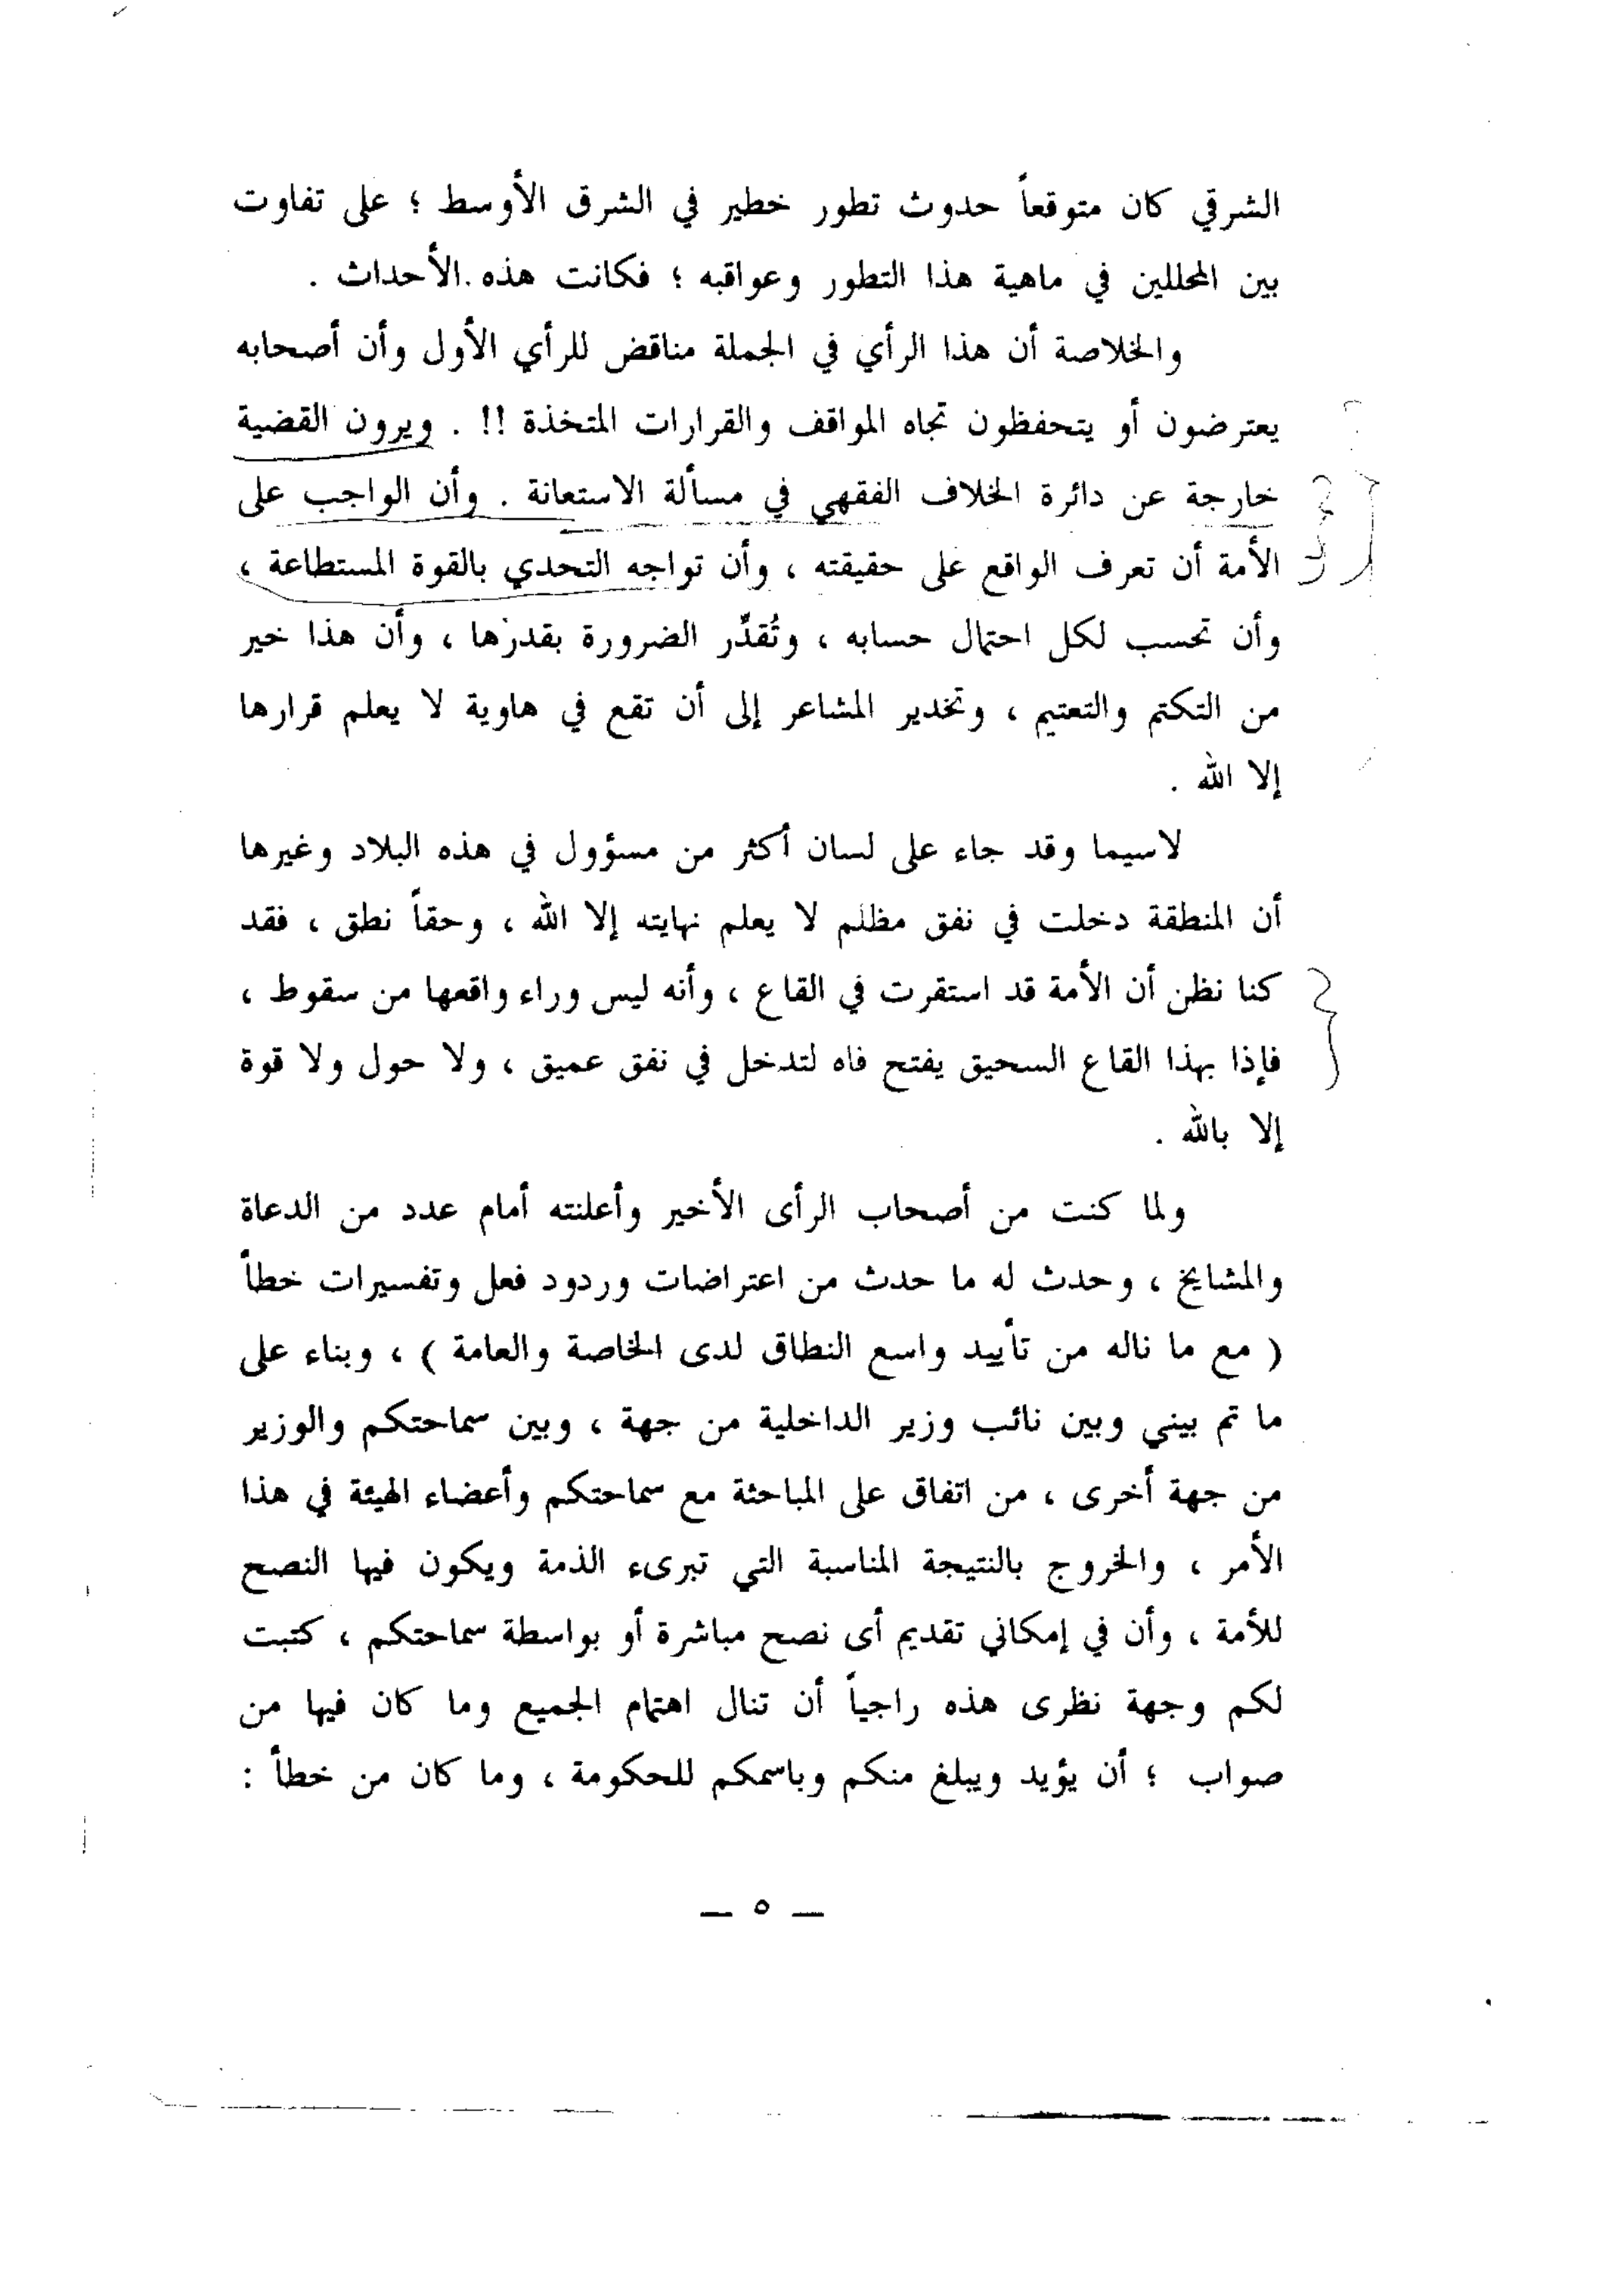 الشرقي كان متوقعاً حدوث تطور خطير في الشرق الأوسط ؛ على تفاوت
بين المحللين في ماهية هذا التطور وعواقبه ؛ فكانت هذه الأحداث .
والخلاصة أن هذا الرأي في الجملة مناقض للرأي الأول وأن أصحابه
يعترضون أو يتحفظون تجاه المواقف والقرارات المتخذة !! . ويرون القضية
خارجة عن دائرة الخلاف الفقهي في مسألة الاستعانة . وأن الواجب على
الأمة أن تعرف الواقع على حقيقته ، وأن تواجه التحدي بالقوة المستطاعة ،
وأن تحسب لكل احتمال حسابه ، وتُقدِّر الضرورة بقدرها ، وأن هذا خير
من التكتم والتعتيم ، وتخدير المشاعر إلى أن تقع في هاوية لا يعلم قرارها
إلا الله .
لاسيما وقد جاء على لسان أكثر من مسؤول في هذه البلاد وغيرها
أن المنطقة دخلت في نفق مظلم لا يعلم نهايته إلا الله ، وحقاً نطق ، فقد
كنا نظن أن الأمة قد استقرت في القاع ، وأنه ليس وراء واقعها من سقوط ،
فإذا بهذا القاع السحيق يفتح فاه لتدخل في نفق عميق ، ولا حول ولا قوة
إلا بالله .
ولما كنت من أصحاب الرأى الأخير وأعلنته أمام عدد من الدعاة
والمشايخ ، وحدث له ما حدث من اعتراضات وردود فعل وتفسيرات خطأ
( مع ما ناله من تأييد واسع النطاق لدى الخاصة والعامة ) ، وبناء على
ما تم بيني وبين نائب وزير الداخلية من جهة ، وبين سماحتكم والوزير
من جهة أخرى ، من اتفاق على المباحثة مع سماحتكم وأعضاء الهيئة في هذا
الأمر ، والخروج بالنتيجة المناسبة التي تبرىء الذمة ويكون فيها النصح
للأمة ، وأن في إمكاني تقديم أى نصح مباشرة أو بواسطة سماحتكم ، كتبت
لكم وجهة نظرى هذه راجياً أن تنال اهتمام الجميع وما كان فيها من
صواب ؛ أن يؤيد ويبلغ منكم وباسمكم للحكومة ، وما كان من خطأ :
— ٥ —